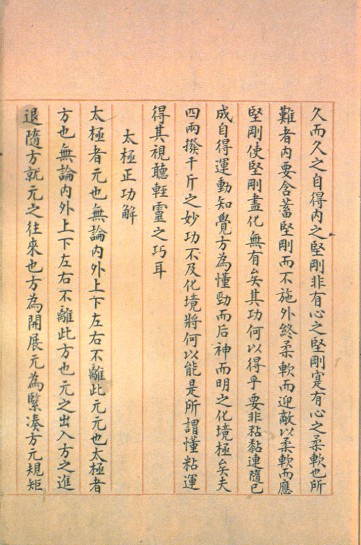 久而久之自得內之堅剛非有心之堅剛寔有心之柔軟也所
難者內要含蓄堅剛而不施外終柔軟而迎敵以柔軟而應
堅剛使堅剛盡化無有矣其功何以得乎要非粘黏連隨已
成自得運動知覺方為懂勁而后神而明之化境極矣夫
四兩撥千斤之妙功不及化境將何以能是所謂懂粘運
得其視聽輕靈之巧耳
太極正功解
太極者元也無論內外上下左右不離此元也太極者
方也無論內外上下左右不離此方也元之出入方之進
退隨方就元之往來也方為開展元為緊湊方元規矩